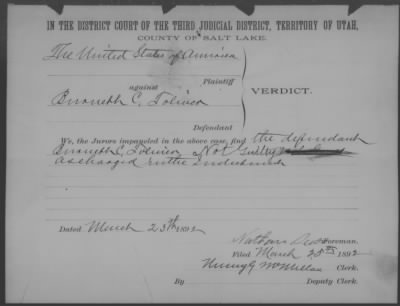 IN THE DISTRICT COURT OF THE THIRD JUDICIAL DISTRICT, TERRITORY OF UTAH,
COUNTY OF SALT LAKE.
The United States of America
Plaintiff
against
VERDICT.
C. Toliver
Defendant
We, the Jurors impaneled in the above case, find the defendant
C. Toliver Not Guilty
as charged in the Indictment
Dated March 25th 1892
Nathan Foreman.
Filed March 25th 1892
Henry G McMillan Clerk.
By Deputy Clerk.